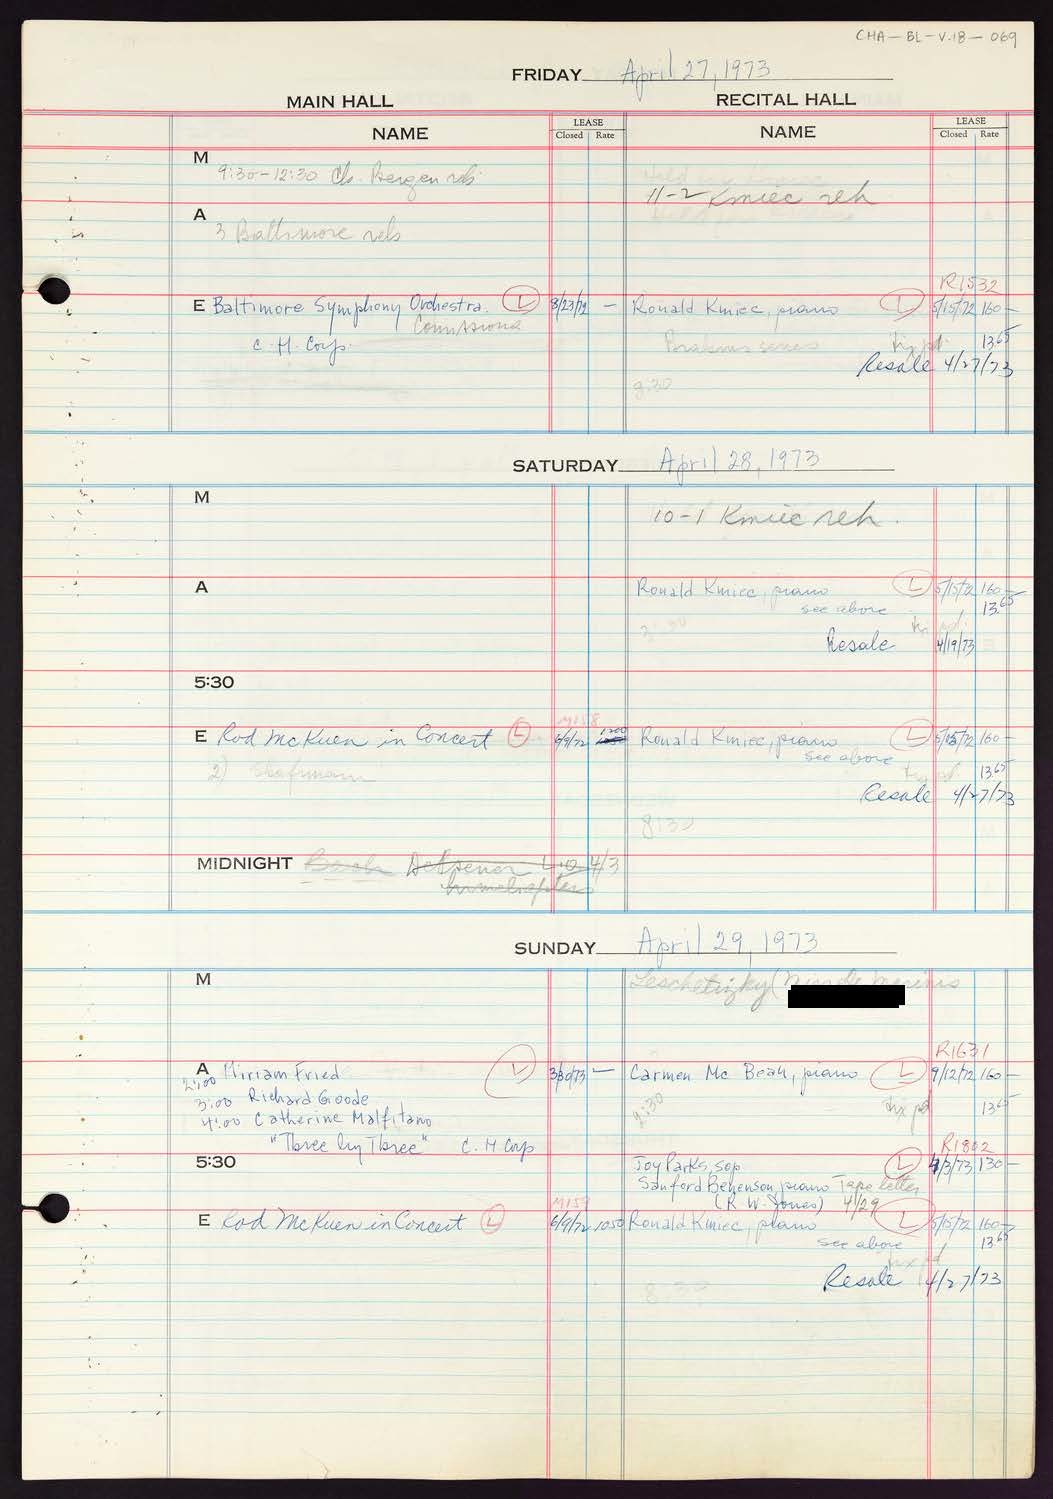 CHA-BL-V.18-069
FRIDAY April 27, 1973
MAIN HALL RECITAL HALL
NAME LEASE Closed Rate NAME LEASE Closed Rate
M
9:30-12:30 Bergen reh.
11-2 Kmiec reh
A
3 Baltimore reh
R1532
E Baltimore Symphony Orchestra. L 8/23/72 — Ronald Kmiec, piano L 5/15/72 160—
Comissiona
C. H. Corp. Brahms series tix pd. 13.65
Resale 4/27/73
SATURDAY April 28, 1973
M
10-1 Kmiec reh.
A Ronald Kmiec, piano L 5/15/72 160—
see above 13.65
tix pd.
Resale 4/19/73
5:30
M158
E Rod McKuen in Concert L 6/9/72 1200 Ronald Kmiec, piano L 5/15/72 160—
see above
2) Shafman tix pd 13.65
Resale 4/27/73
8:30
MIDNIGHT 4/3
SUNDAY April 29, 1973
M Leschetizky (
R1631
A Miriam Fried L 3/30/73 — Carmen Mc Bean, piano L 9/12/72 160—
2:00
3:00 Richard Goode tix pd 13.65
4:00 Catherine Malfitano
"Three by Three" C. H Corp R1802
5:30 Joy Parks, sop L 4/3/73 130—
Sanford Behenson, piano Tape letter
(R. W. Jones) 4/29
M159
E Rod McKuen in Concert L 6/9/72 1050 Ronald Kmiec, piano L 5/15/72 160—
see above 13.65
tix pd
Resale 4/27/73
8:30